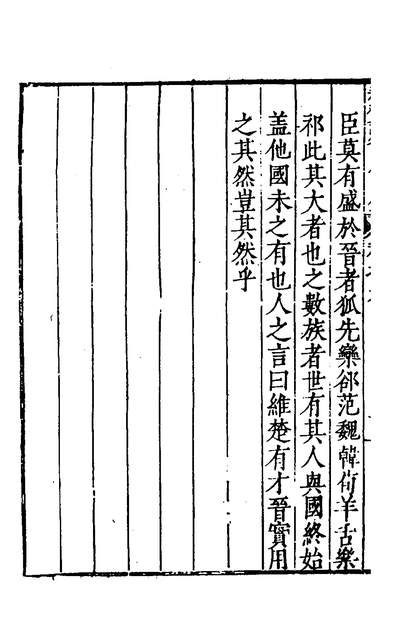 臣莫有盛於晉者狐先欒郤范魏韓荀羊舌樂
祁此其大者也之數族者世有其人與國終始
盖他國未之有也人之言曰維楚有才晉實用
之其然豈其然乎